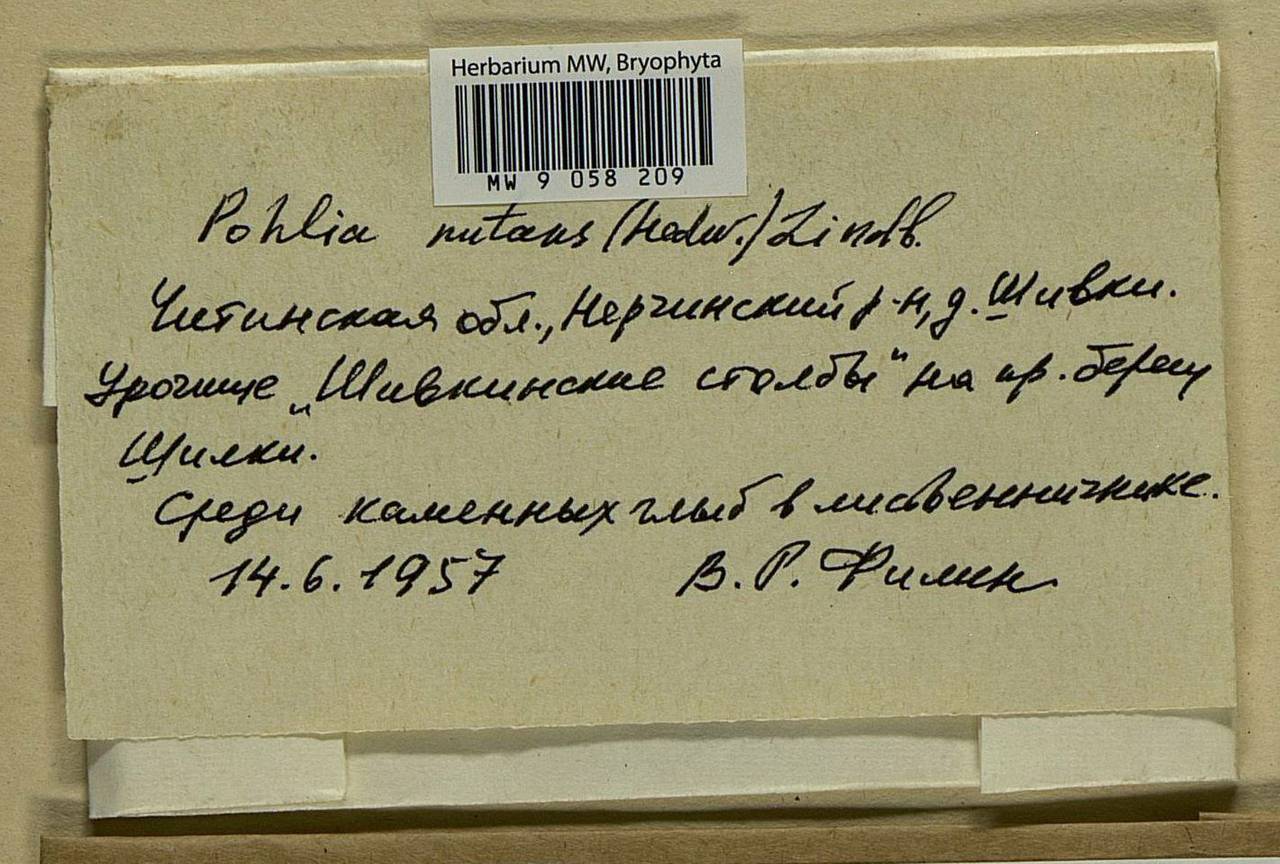 Herbarium MW, Bryophyta
MW 9 058 209
Pohlia nutans (Hedw.) Lindb.
Читинская обл., Нерчинский р-н, д. Шивки.
Урочище „Шивкинские столбы" на пр. берегу
Шилки.
Среди каменных глыб в лиственничнике.
14.6.1957 В. Р. Филин